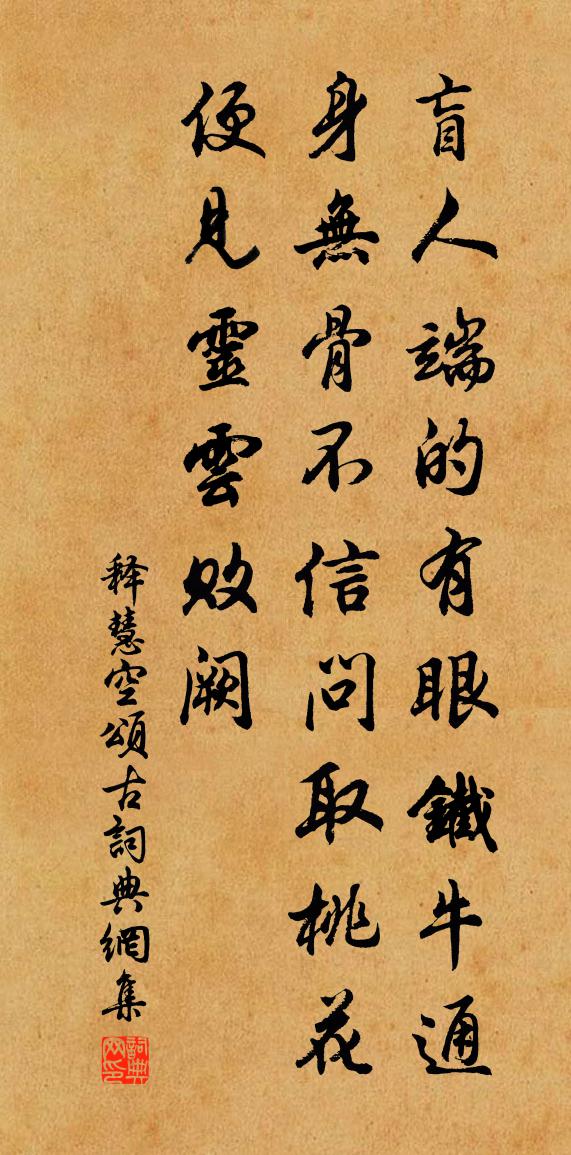 盲人端的有眼鐵牛通
身無骨不信問取桃花
便見靈雲敗闕
释慧空頌古詞典網集
詞典網印